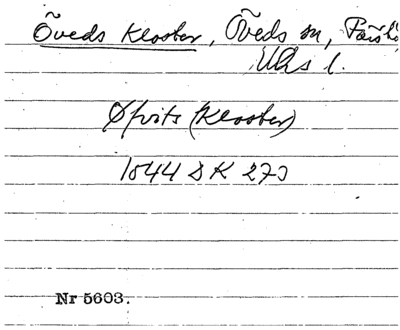 Öveds Kloster, Öveds sn, Färs h
Mhs l.
Øfvits (Kloster)
1544 DK 270
Nr 5603.